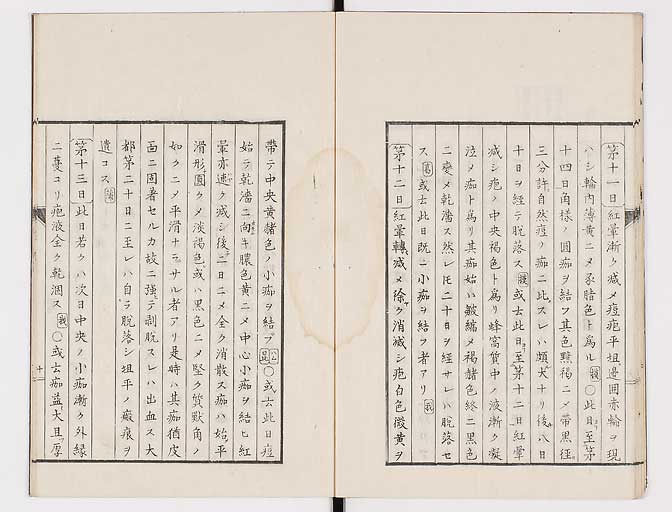 第十一日 紅暈漸ク減メ痘疱平坦邊囲赤輪ヲ現
ハシ輪内薄黄ニメ承暗色ト為ル 〇此日ヨリ至第
十四日角様ノ圓痂ヲ結フ其色黯褐ニメ帯黒径
三分許自然痘ノ痂ニ此スレハ頗大ナリ後八日
十日ヲ経テ脱落ス 或云此日ヨリ至第十二日紅暈
減シ疱ノ中央褐色ト為リ蜂窩質中ノ液漸ク凝
泣メ痂ト為リ其痂始ハ皺縮メ褐赭色終ニ黒色
ニ変メ乾瀋ス然レ𪜈二十日ヲ経サレハ脱落セ
ス 或云此日既ニ小痂ヲ結フ者アリ
第十二日 紅暈轉減メ徐ク消滅シ疱白色微黄ヲ
帯テ中央黄赭色ノ小痂ヲ結フ 〇或云此日痘
始テ乾瀋ニ向キ膿色黄ニメ中心小痂ヲ結ヒ紅
暈亦速ク減シ後二日ニメ全ク消散ス痂ハ始平
滑形圓クメ淡褐色或ハ黒色ニメ堅ク質獣角ノ
如クニメ平滑ナラサル者アリ是時ハ其痂猶皮
面ニ固著セルカ故ニ強テ剥脱スレハ出血ス大
都第二十日ニ至レハ自ラ脱落シ坦平ノ瘢痕ヲ
遺コス
第十三日 此日若クハ次日中央ノ小痂漸ク外縁
ニ蔓コリ疱液全ク乾涸ス 〇或云痂益大且厚
十